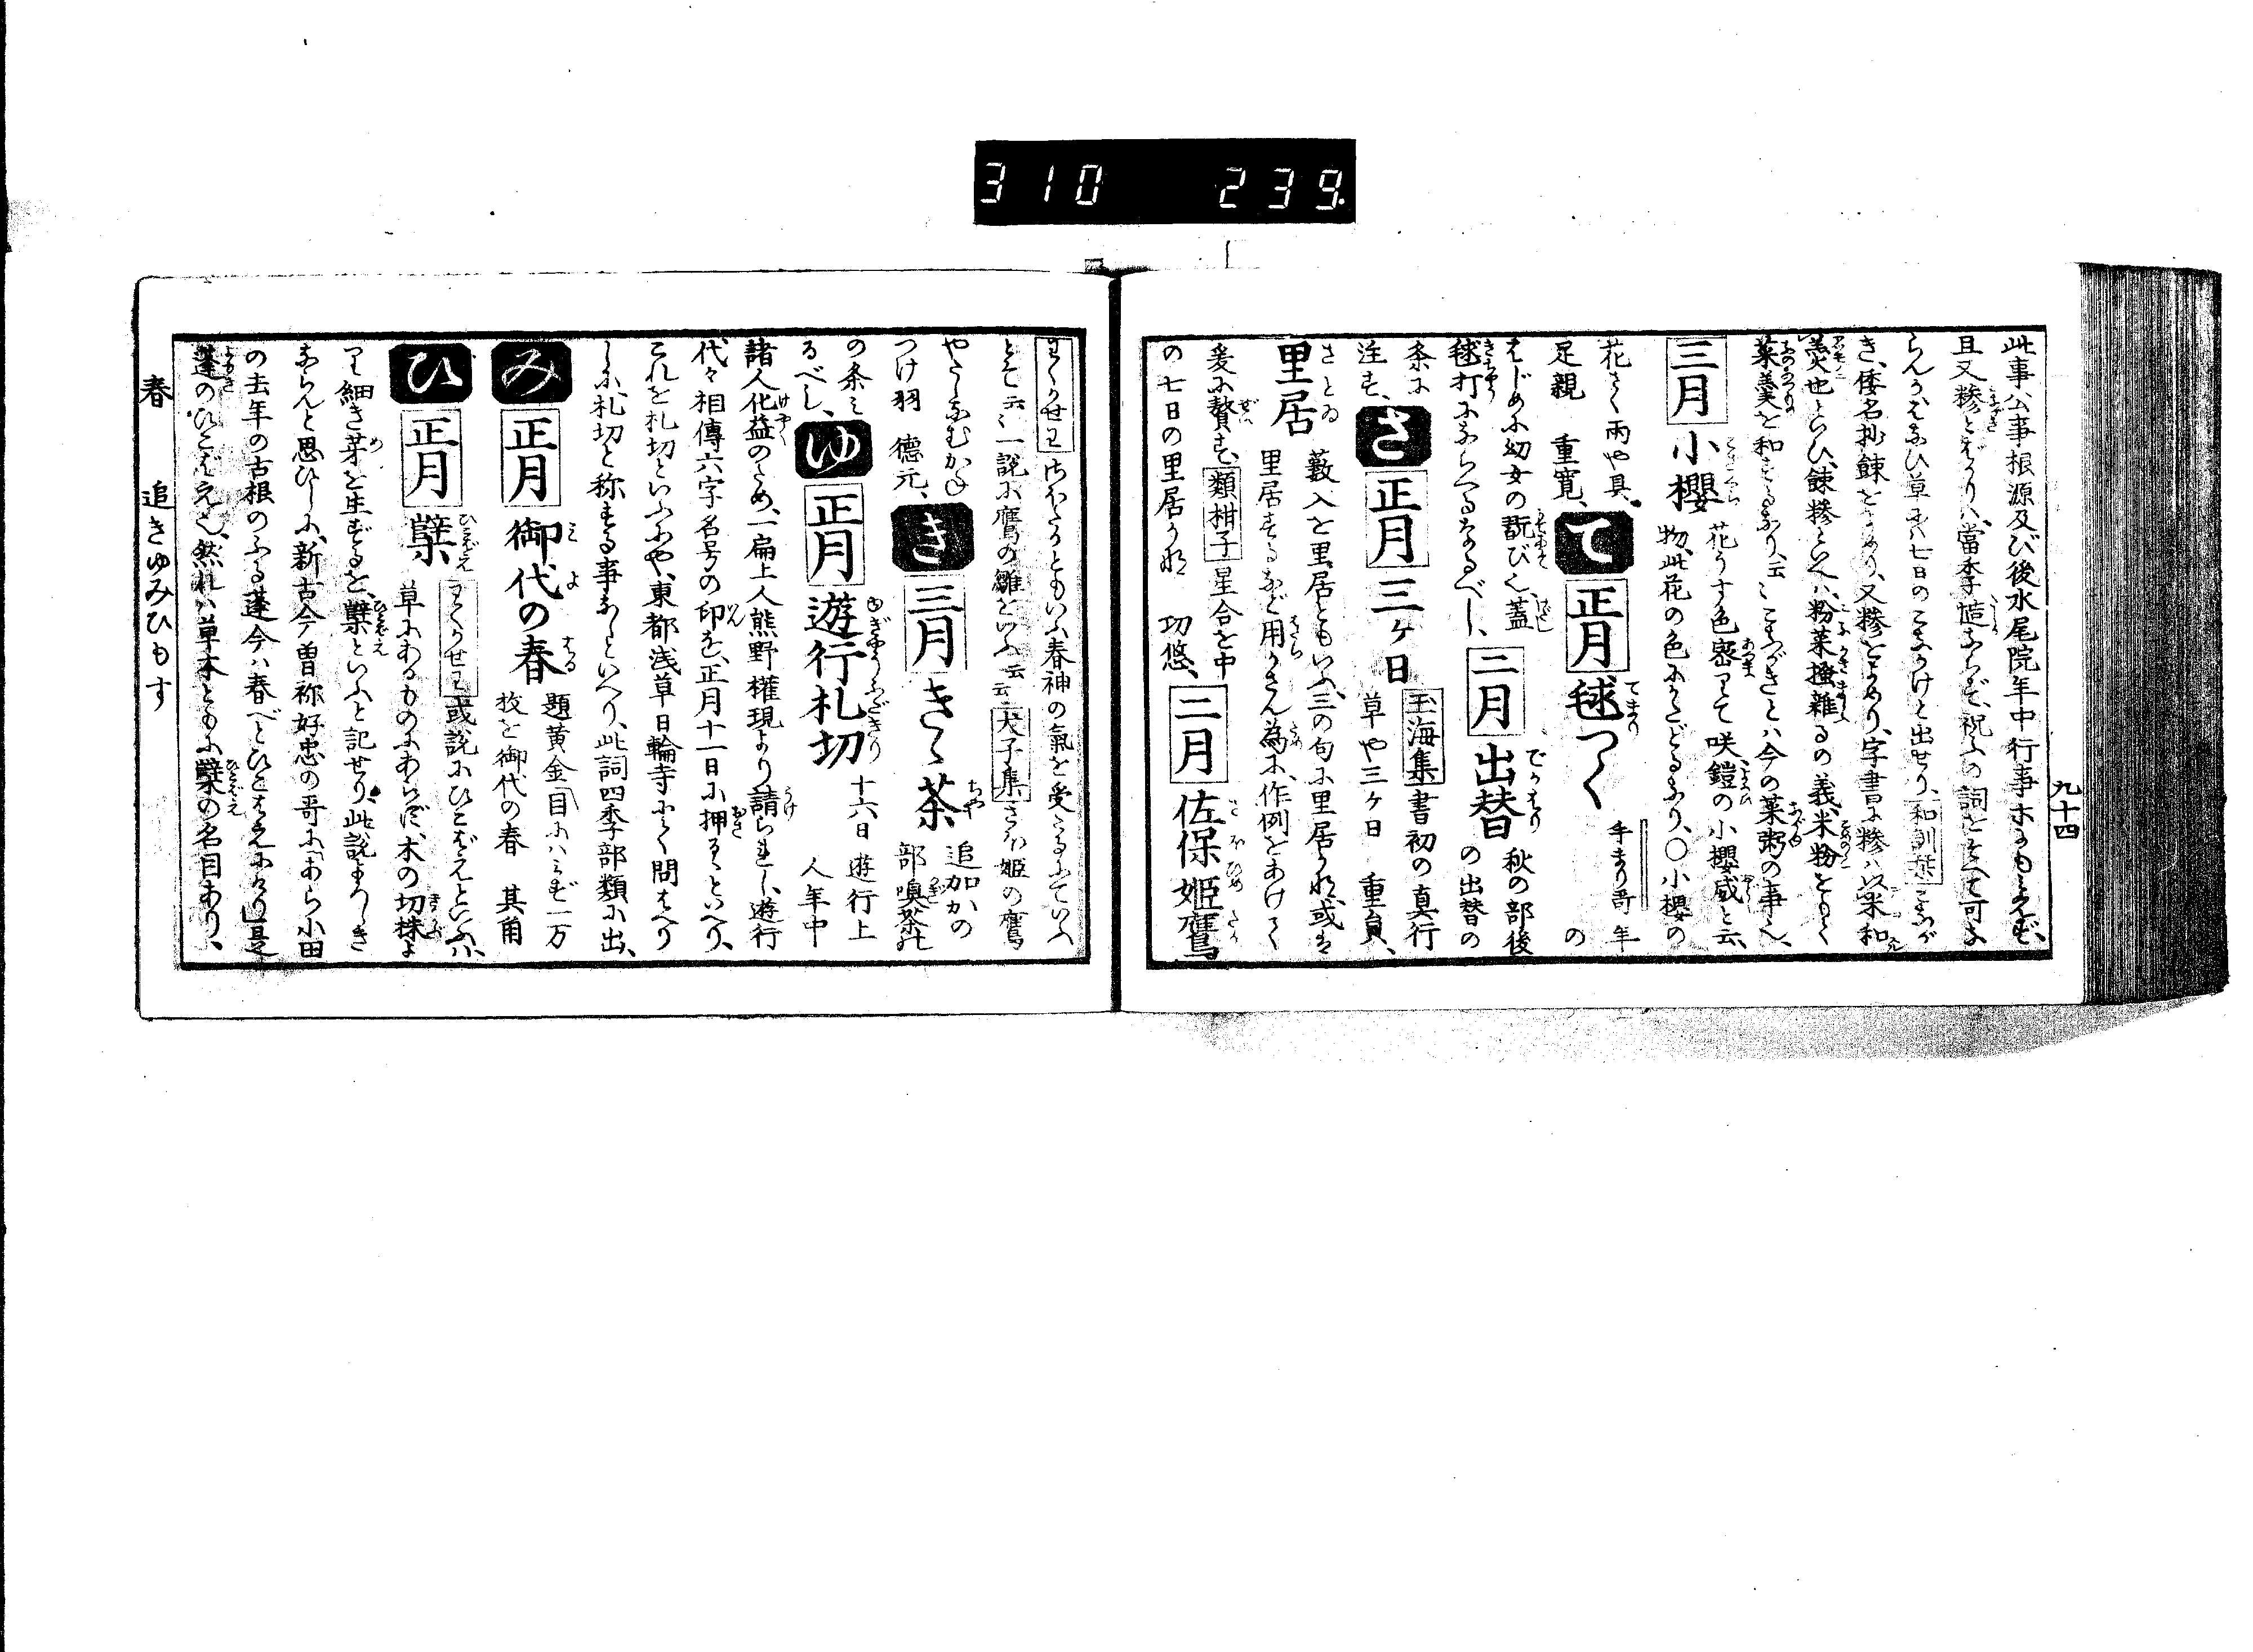 310 239.
九十四
此事公事根源及び後水尾院年中行事ホにもミえず、
且又糝とばかりハ、當季慥ならず、祝ふの詞をそへて可な
らんか、をなひ草に七日のこなかけと出せり、和訓栞こなが
き、倭名抄餗をよめり、又糝をよめり、字書に糝ハ以米和
羹也といひ、餗糝といへハ、粉菜搔雜るの義、米粉をもて
菜羹を和するなり、云〻こなづきとハ今の菜粥の事也、
三月 小櫻 花うす色密りて咲、鎧の小櫻威と云、
物、此花の色にかたどるなり、〇小櫻の
花さく雨や具
足親 重寛、 て 正月 毬つく 手まり哥 年の
はじめに幼女の翫び也、蓋
毬打にならへるなるべし、 二月 出替 秋の部後の出替の
条に
注す、 さ 正月 三ケ日 玉海集 書初の真行
草や三ケ日 重貞、
里居 藪入を里居ともいふ、三の句に里居かな或は
里居するなど用かさん為に、作例をあけて
爰に贅す、類柑子 星合を中
の七日の里居かな 切悠、 三月 佐保姫鷹
とて云〻一説に鷹の雛をいふ云云 犬子集 さほ姫の鷹
つけ羽 徳元、 き 三月 きゝ茶 追加かの
部嗅茶
の条ミ
るべし、 ゆ 正月 遊行札切 十六日 遊行上
人年中
諸人化益のため、一扁上人熊野權現より請られし、遊行
代々相傳六字名号の印を、正月十一日に押るといへり、
これを札切といふにや、東都浅草日輪寺にて問はへり
しに、札切と称する事なしといへり、此詞四季部類に出、
み 正月 御代の春 題黄金 目にハミず一万
枚を御代の春 其角
ひ 正月 蘖 或説にひこばえといふハ、
草にあるものにあらず、木の切株よ
り細き芽を生ずるを、蘖といふと記せり、此説よろしき
ならんと思ひしに、新古今曽祢好忠の哥に「あら小田
の去年の古根のふる蓬今ハ春べとひこばえにけり」是
蓬のひこばえ也、然れハ草木ともに、蘖の名目あり、
春 追きゆみひもす